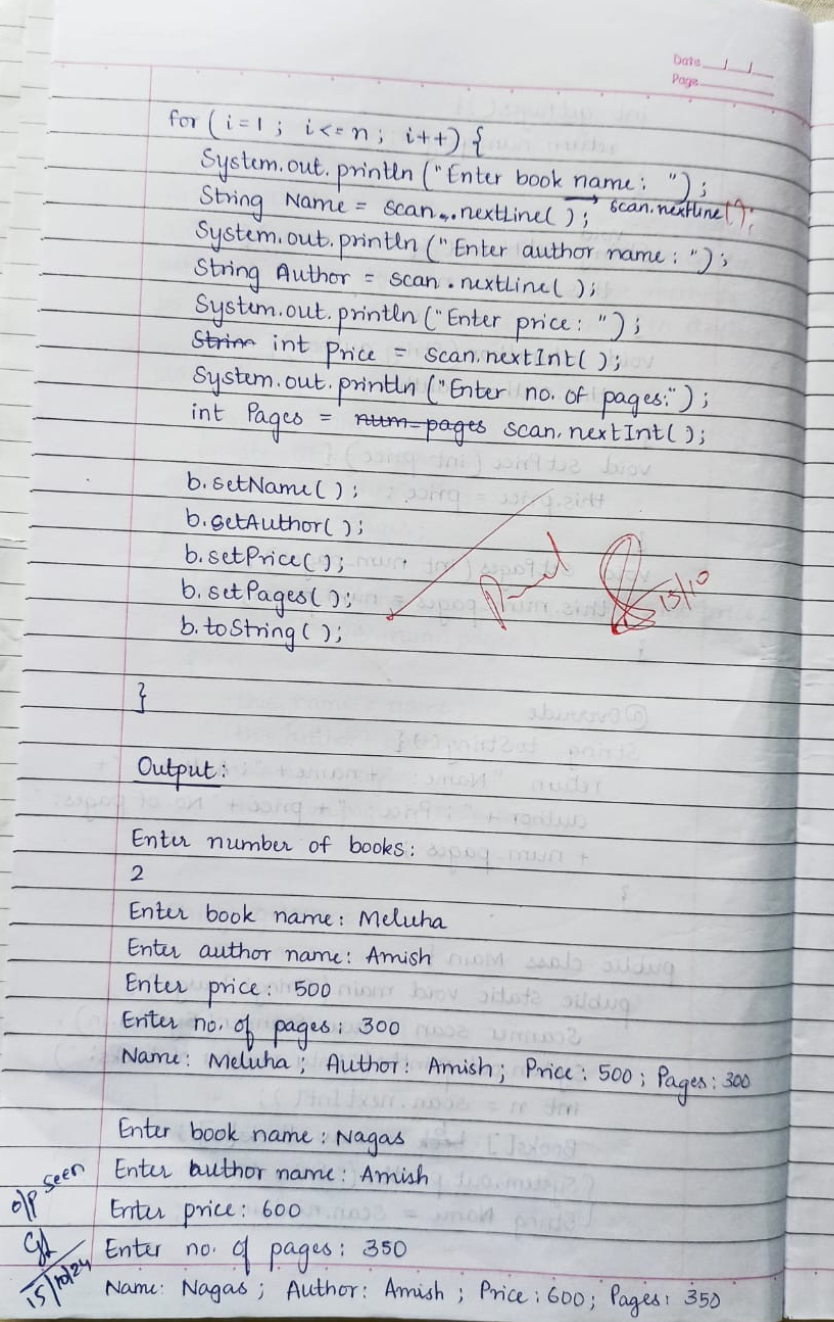 Date
Page
for (i=1 ; i<=n ; i++) {
System.out.println ("Enter book name : ");
String Name = scan.nextLine( ); scan.nextLine( );
System.out.println ("Enter author name : ");
String Author = scan.nextLine( );
System.out.println ("Enter price : ");
int Price = scan.nextInt( );
System.out.println ("Enter no. of pages:");
int Pages = num-pages scan.nextInt( );
b.setName( );
b.setAuthor( );
b.setPrice( );
b.setPages( );
b.toString( );
}
Output:
Enter number of books:
2
Enter book name: Meluha
Enter author name: Amish
Enter price: 500
Enter no. of pages: 300
Name: Meluha ; Author: Amish ; Price: 500 ; Pages: 300
Enter book name : Nagas
Enter author name : Amish
Enter price: 600
Enter no. of pages: 350
Name: Nagas ; Author: Amish ; Price: 600; Pages: 350
15/10
o/p seen
15/10/24